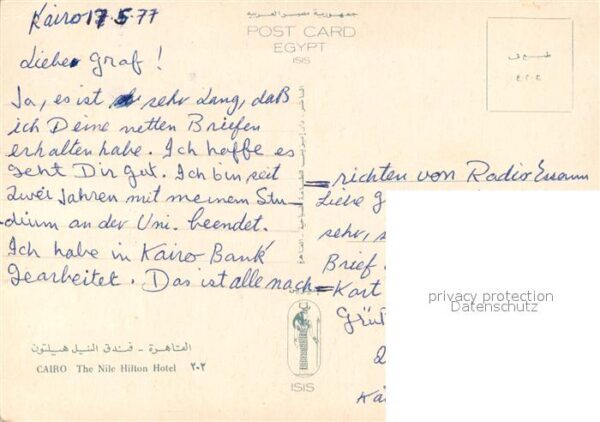 Kairo 17.5.77
Lieber Graf!
Ja, es ist sehr lang, daß
ich Deine netten Briefen
erhalten habe. Ich hoffe es
geht Dir gut. Ich bin seit
zwei Jahren mit meinem Stu-
dium an der Uni. beendet.
Ich habe in Kairo Bank
gearbeitet. Das ist alle nach=
القاهرة - فندق النيل هيلتون
CAIRO The Nile Hilton Hotel ٢٠٢
جمهورية مصر العربية
POST CARD
EGYPT
ISIS
=richten von
Liebe G
sehr, s
Brief
=Kart
Grüß
Kai
ISIS
privacy protection
Datenschutz